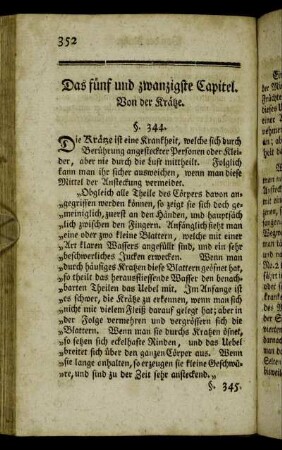 352
Das fünf und zwanzigste Capitel.
Von der Krätze.
§. 344.
Die Krätze ist eine Krankheit, welche sich durch
Berührung angesteckter Personen oder Klei-
der, aber nie durch die Luft mittheilt. Folglich
kann man ihr sicher ausweichen, wenn man diese
Mittel der Ansteckung vermeidet.
„Obgleich alle Theile des Cörpers davon an-
„gegriffen werden können, so zeigt sie sich doch ge-
„meiniglich, zuerst an den Händen, und hauptsäch
„lich zwischen den Fingern. Anfänglich sieht man
„eine oder zwo kleine Blattern, welche mit einer
„Art klaren Wassers angefüllt sind, und ein sehr
„beschwerliches Jucken erwecken. Wenn man
„durch häusiges Kratzen diese Blattern geöfnet hat,
„so theilt das herausfliessende Wasser den benach-
„barten Theilen das Uebel mit. Im Anfange ist
„es schwer, die Krätze zu erkennen, wenn man sich
„nicht mit vielem Fleiß darauf gelegt hat; aber in
„der Folge vermehren und vergrössern sich die
„Blattern. Wenn man sie durchs Kratzen öfnet,
„so setzen sich eckelhafte Rinden, und das Uebel
„breitet sich über den ganzen Cörper aus. Wenn
„sie lange anhalten, so erzeugen sie kleine Geschwü-
„re, und sind zu der Zeit sehr ansteckend.„
§. 345.